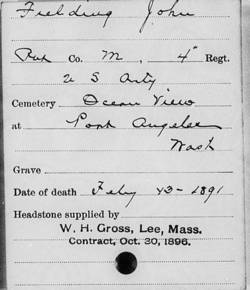 Fielding John
Pvt Co. M, 4" Regt.
U S Arty
Cemetery Ocean View
at Port Angeles
Wash
Grave
Date of death Feby 1891
Headstone supplied by
W. H. Gross, Lee, Mass.
Contract, Oct. 30, 1896.